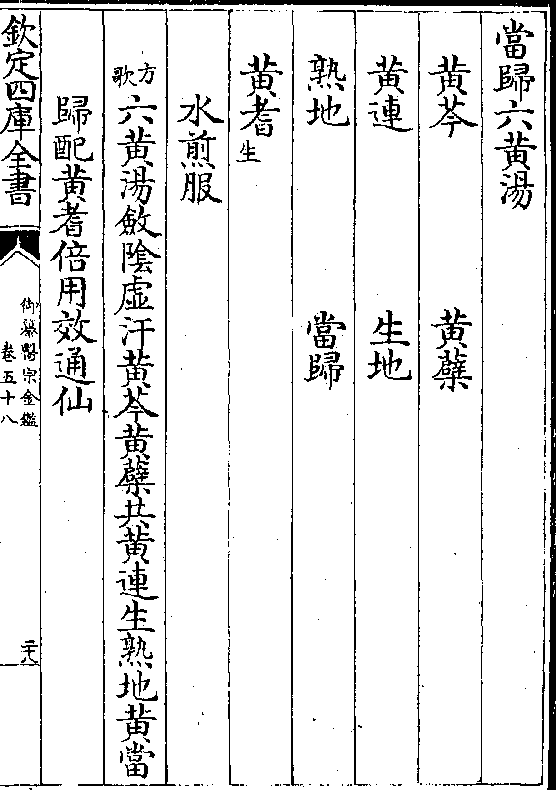 當歸六黄湯
黄芩　黄蘗
黄連　生地
熟地　當歸
黄耆生
水煎服
方歌六黄湯斂陰虛汗黄芩黄蘗共黄連生熟地黄當
歸配黄耆倍用效通仙
欽定四庫全書
御纂醫宗金鑑
卷五十八
二十八